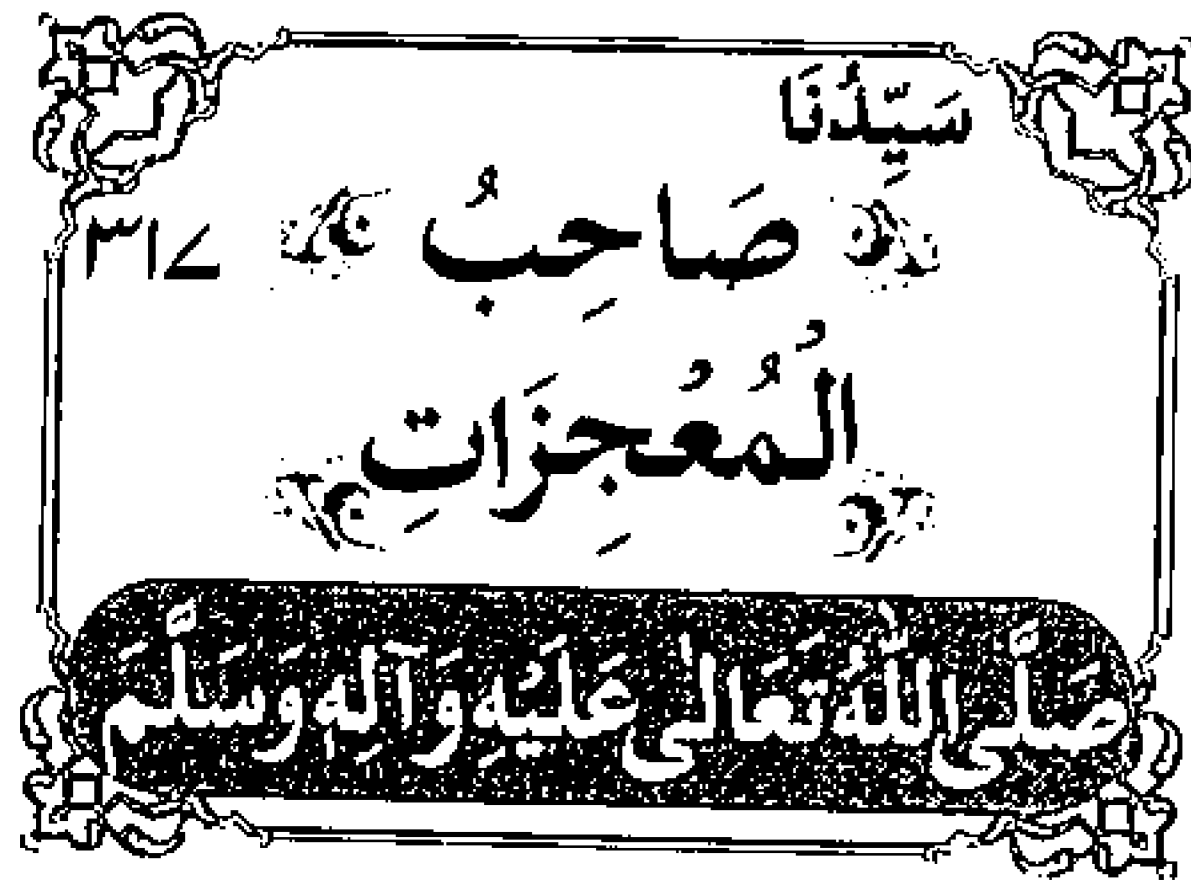 سَيِّدُنَا
صَاحِبُ
٣١٧
الْمُعْجِزَاتِ
صَلَّى اللّٰهُ تَعَالٰى عَلَيْهِ وَآلِهٖ وَسَلَّمَ